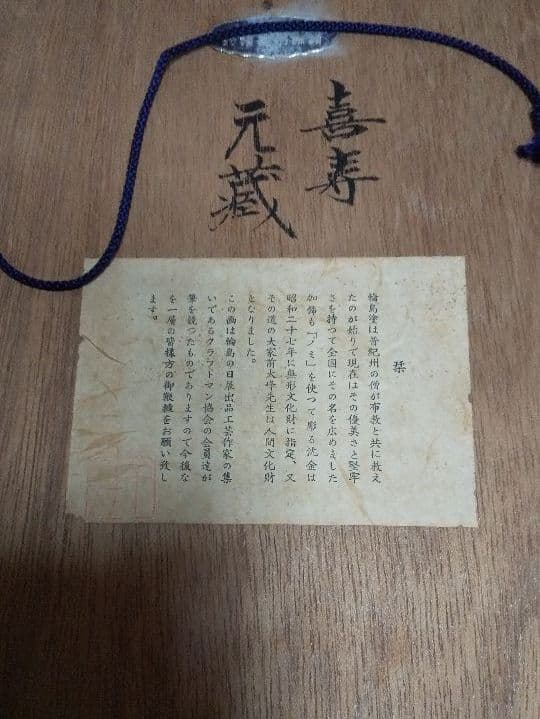 喜寿
元蔵
栞
輪島塗は昔紀州の僧が布教と共に教え
たのが始りで現在はその優美さと堅牢
さを持つて全国にその名を広めました
加飾も『ノミ』を使つて彫る沈金は
昭和二十七年に無形文化財に指定、又
その道の大家前大峰先生は人間文化財
となりました。
この画は輪島の日展出品工芸作家の集
いであるクラフトマン協会の会員達が
筆を競つたものでありますので今後な
を一層の皆様方の御鞭撻をお願い致し
ます。